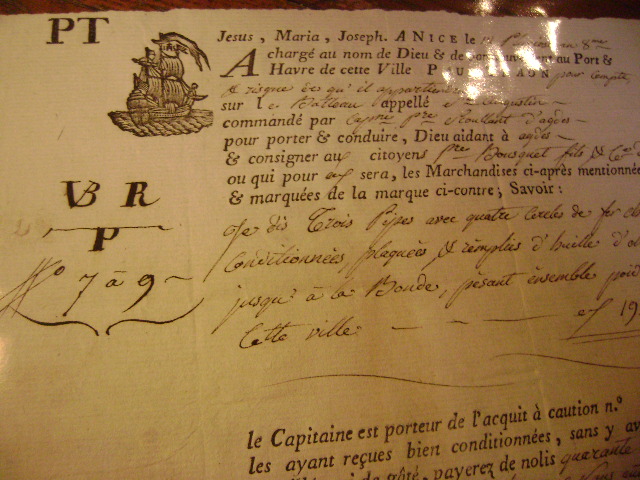 PT
Jesus, Maria, Joseph. A NICE le
A chargé au nom de Dieu & de au Port &
Havre de cette Ville PAUL pour compte
& risque de qu'il appartiendra
sur le Batteau appellé St. Augustin
commandé par Capne. pre. Roullant d'agde
pour porter & conduire, Dieu aidant à agde
& consigner aux citoyens pre. Bousquet fils & Ce.
ou qui pour eux sera, les Marchandises ci-après mentionnée
& marquées de la marque ci-contre; Savoir:
VB R
P
No. 7 à 9
Je dis Trois Pipes avec quatre cercles de fer
Conditionnées, plaquées & remplies d'huille d'
jusqu'à la Bonde, pesant ensemble poid
Cette ville 19
le Capitaine est porteur de l'acquit à caution n.º
les ayant reçues bien conditionnées, sans y av
côté, payerez de nolis quarante